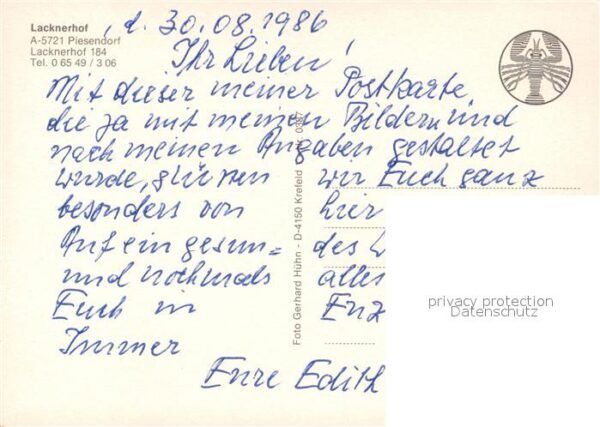 Lacknerhof
A-5721 Piesendorf
Lacknerhof 184
Tel. 0 65 49 / 3 06
, d. 30.08.1986
Ihr Lieben!
Mit dieser meiner Postkarte,
die ja mit meinen Bildern und
nach meinen Angaben gestaltet
wurde, grüssen wir Euch ganz
besonders von hier
Auf ein gesun= des
und nochmals alles
Euch in
Immer
Eure Edith
Foto Gerhard Hühn - D-4150 Krefeld
privacy protection
Datenschutz